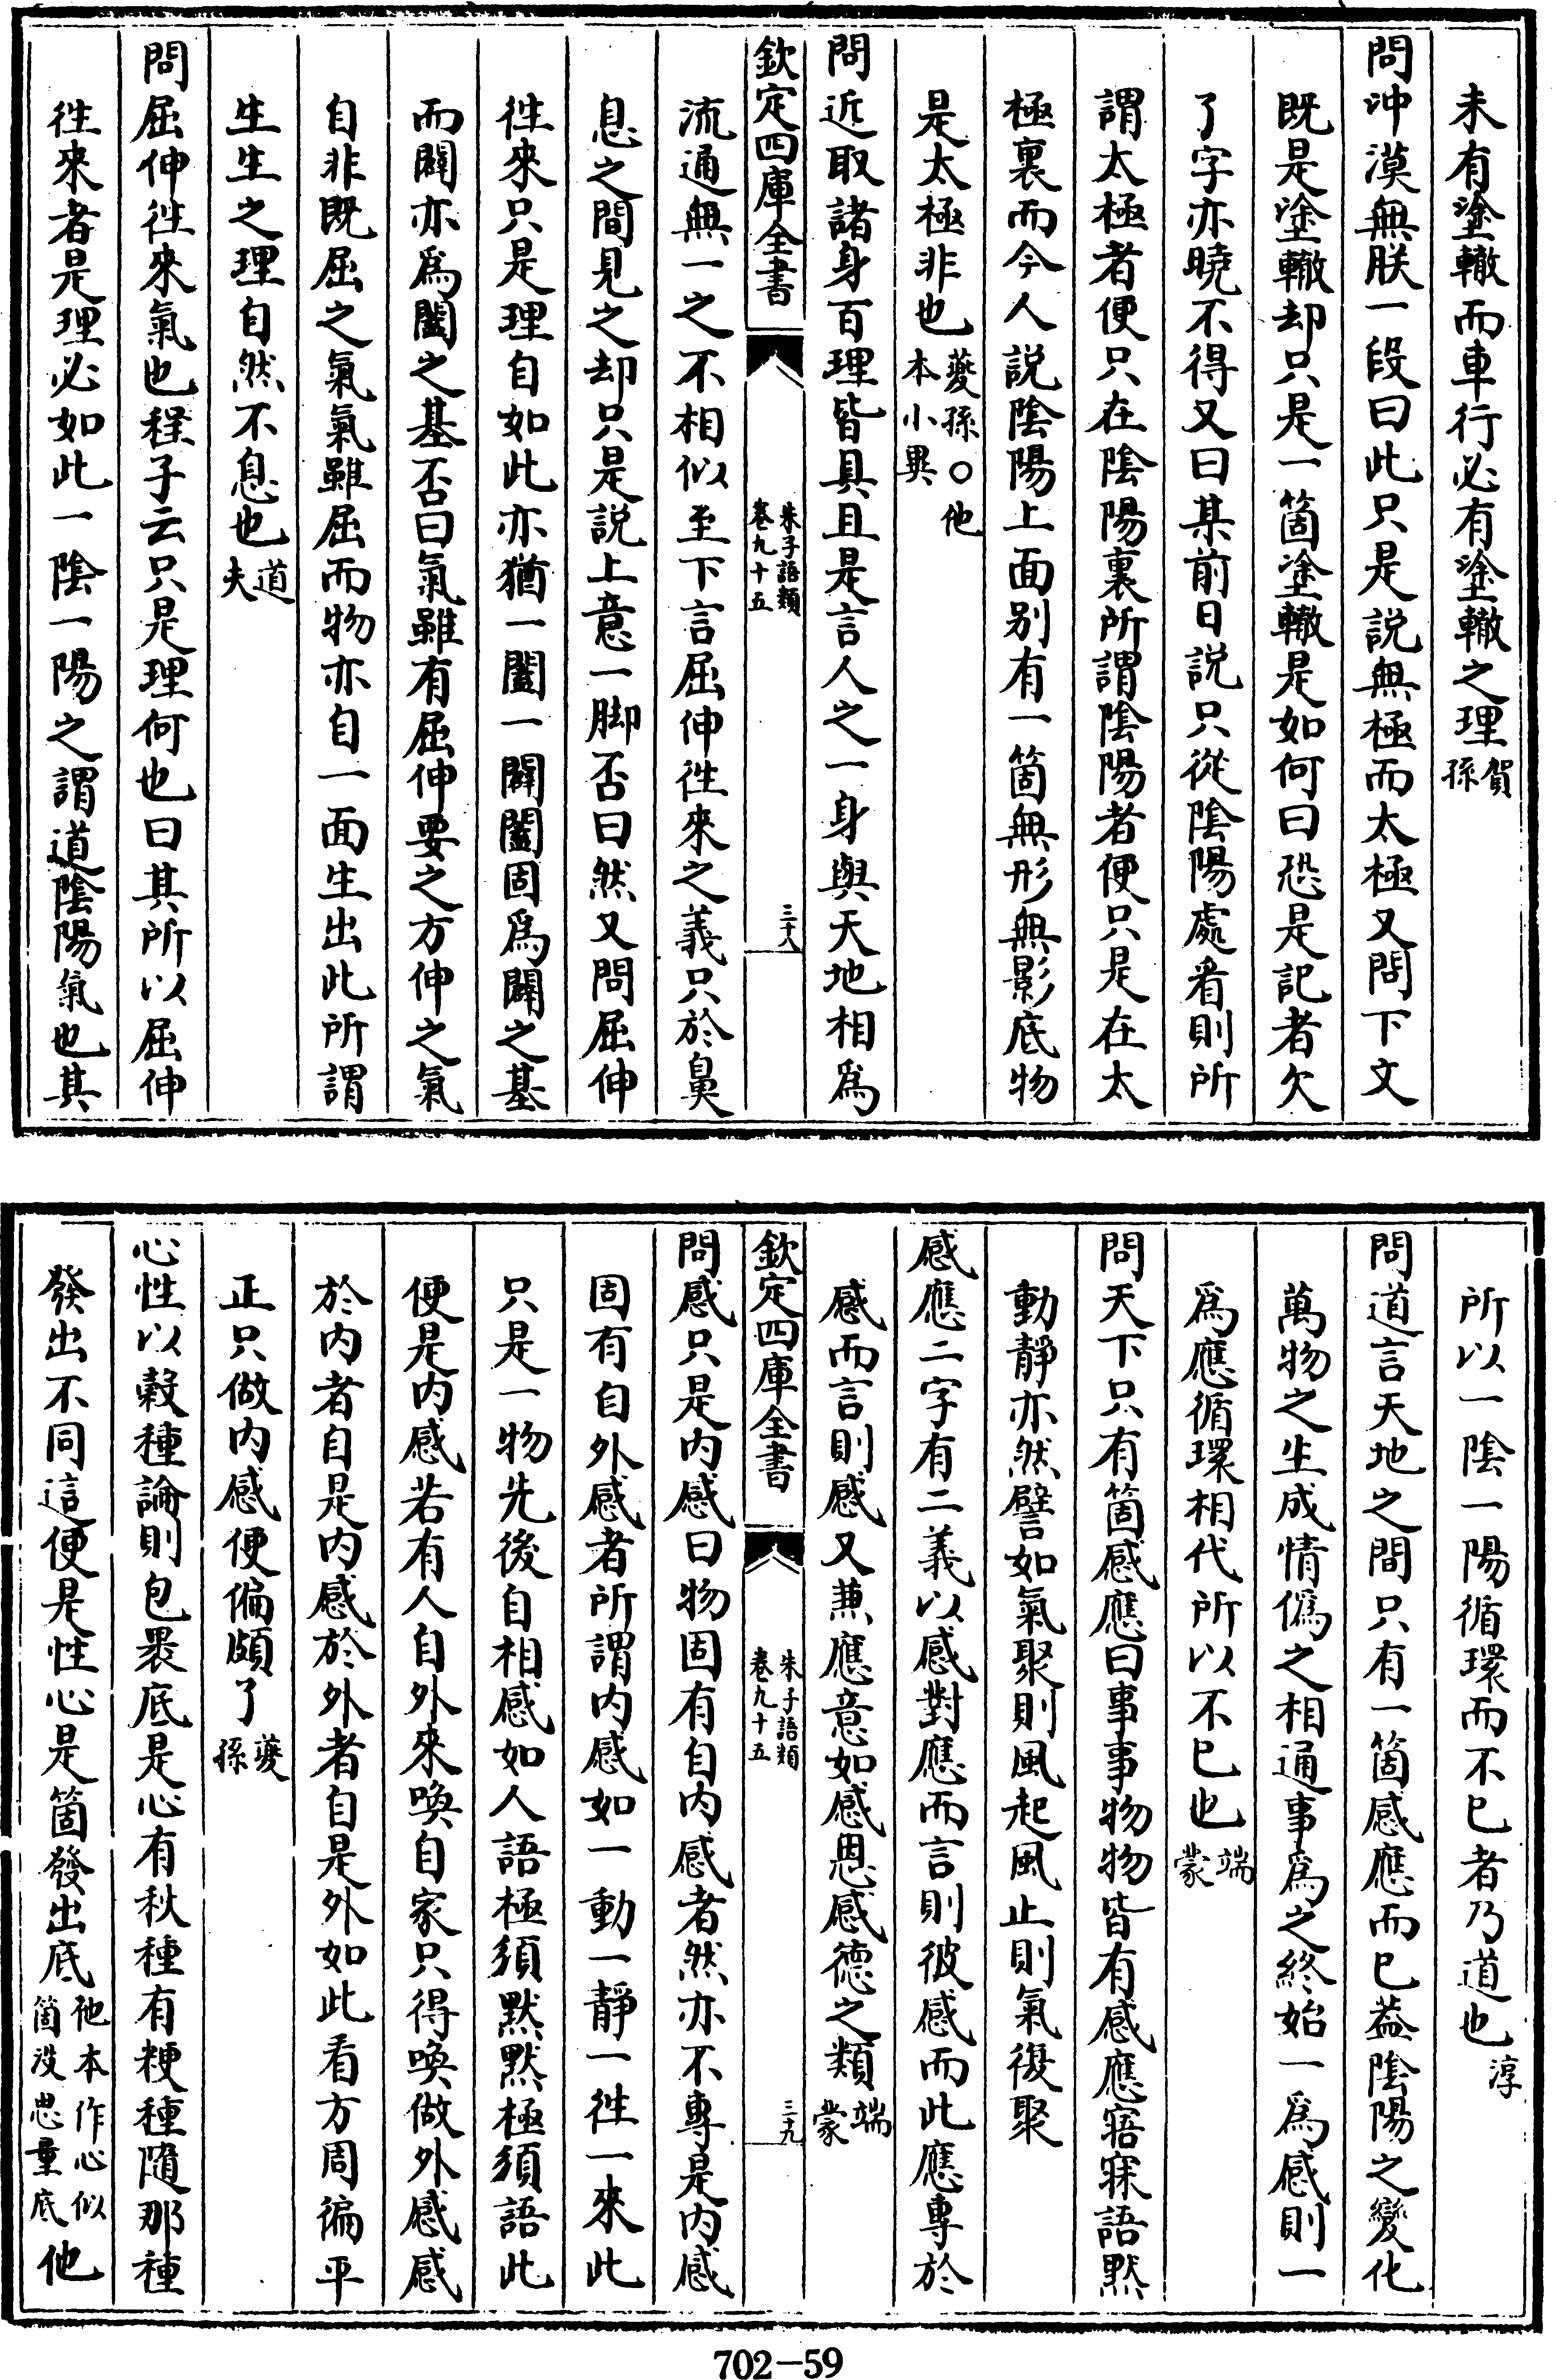 未有塗轍而車行必有塗轍之理賀孫
問沖漠無朕一段曰此只是説無極而太極又問下文
既是塗轍却只是一箇塗轍是如何曰恐是記者欠
了字亦曉不得又曰某前日説只從陰陽處看則所
謂太極者便只在陰陽裏所謂陰陽者便只是在太
極裏而今人説陰陽上面别有一箇無形無影底物
是太極非也夔孫○他本小異
問近取諸身百理皆具且是言人之一身與天地相為
欽定四庫全書
朱子語類
卷九十五
三十八
流通無一之不相似至下言屈伸徃來之義只於鼻
息之間見之却只是説上意一脚否曰然又問屈伸
徃來只是理自如此亦猶一闔一闢闔固為闢之基
而闢亦為闔之基否曰氣雖有屈伸要之方伸之氣
自非既屈之氣氣雖屈而物亦自一面生出此所謂
生生之理自然不息也道夫
問屈伸徃來氣也程子云只是理何也曰其所以屈伸
徃來者是理必如此一陰一陽之謂道陰陽氣也其
所以一陰一陽循環而不已者乃道也淳
問道言天地之間只有一箇感應而已葢陰陽之變化
萬物之生成情偽之相通事為之終始一為感則一
為應循環相代所以不已也端蒙
問天下只有箇感應曰事事物物皆有感應寤寐語黙
動靜亦然譬如氣聚則風起風止則氣復聚
感應二字有二義以感對應而言則彼感而此應專於
感而言則感又兼應意如感恩感德之類端蒙
欽定四庫全書
朱子語類
卷九十五
三十九
問感只是内感曰物固有自内感者然亦不專是内感
固有自外感者所謂内感如一動一靜一徃一來此
只是一物先後自相感如人語極須黙黙極須語此
便是内感若有人自外來喚自家只得喚做外感感
於内者自是内感於外者自是外如此看方周徧平
正只做内感便偏頗了夔孫
心性以榖種論則包褁底是心有秋種有粳種隨那種
發出不同這便是性心是箇發出底他本作心似箇没思量底他
702-59